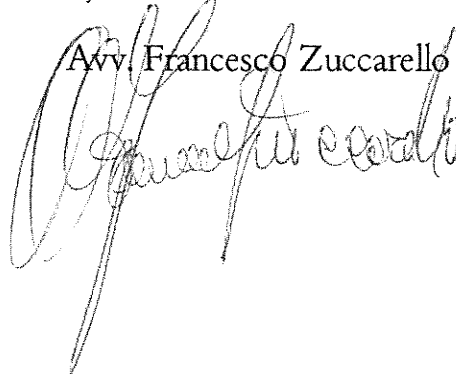 Avv. Francesco Zuccarello